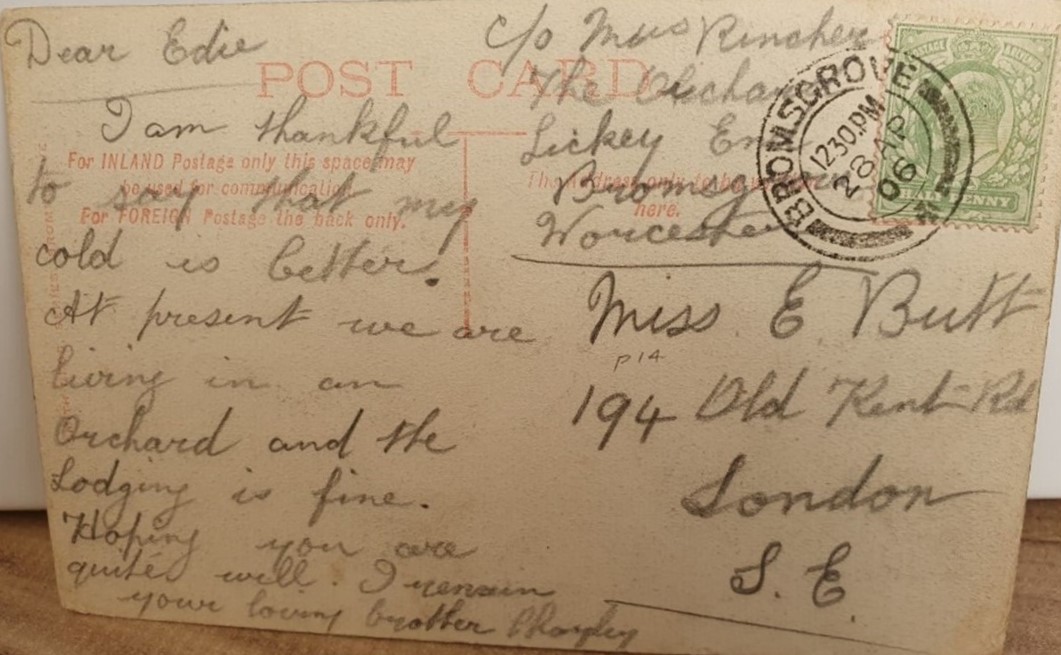 Dear Edie
I am thankful
to say that my
cold is better.
At present we are
living in an
Orchard and the
Lodging is fine.
Hoping you are
quite well. I remain
your loving brother
c/o Mrs Rincher
The Orchard
Lickey En
Bromsgrove
Worcester
Miss E Butt
P14
194 Old Kent Rd
London
S. E.
POST CARD
For INLAND Postage only this space may
be used for communication
For FOREIGN Postage the back only.
The Address only to be
here.
BROMSGROVE
12 30 PM
28 AP
06
POSTAGE REVENUE
HALF PENNY